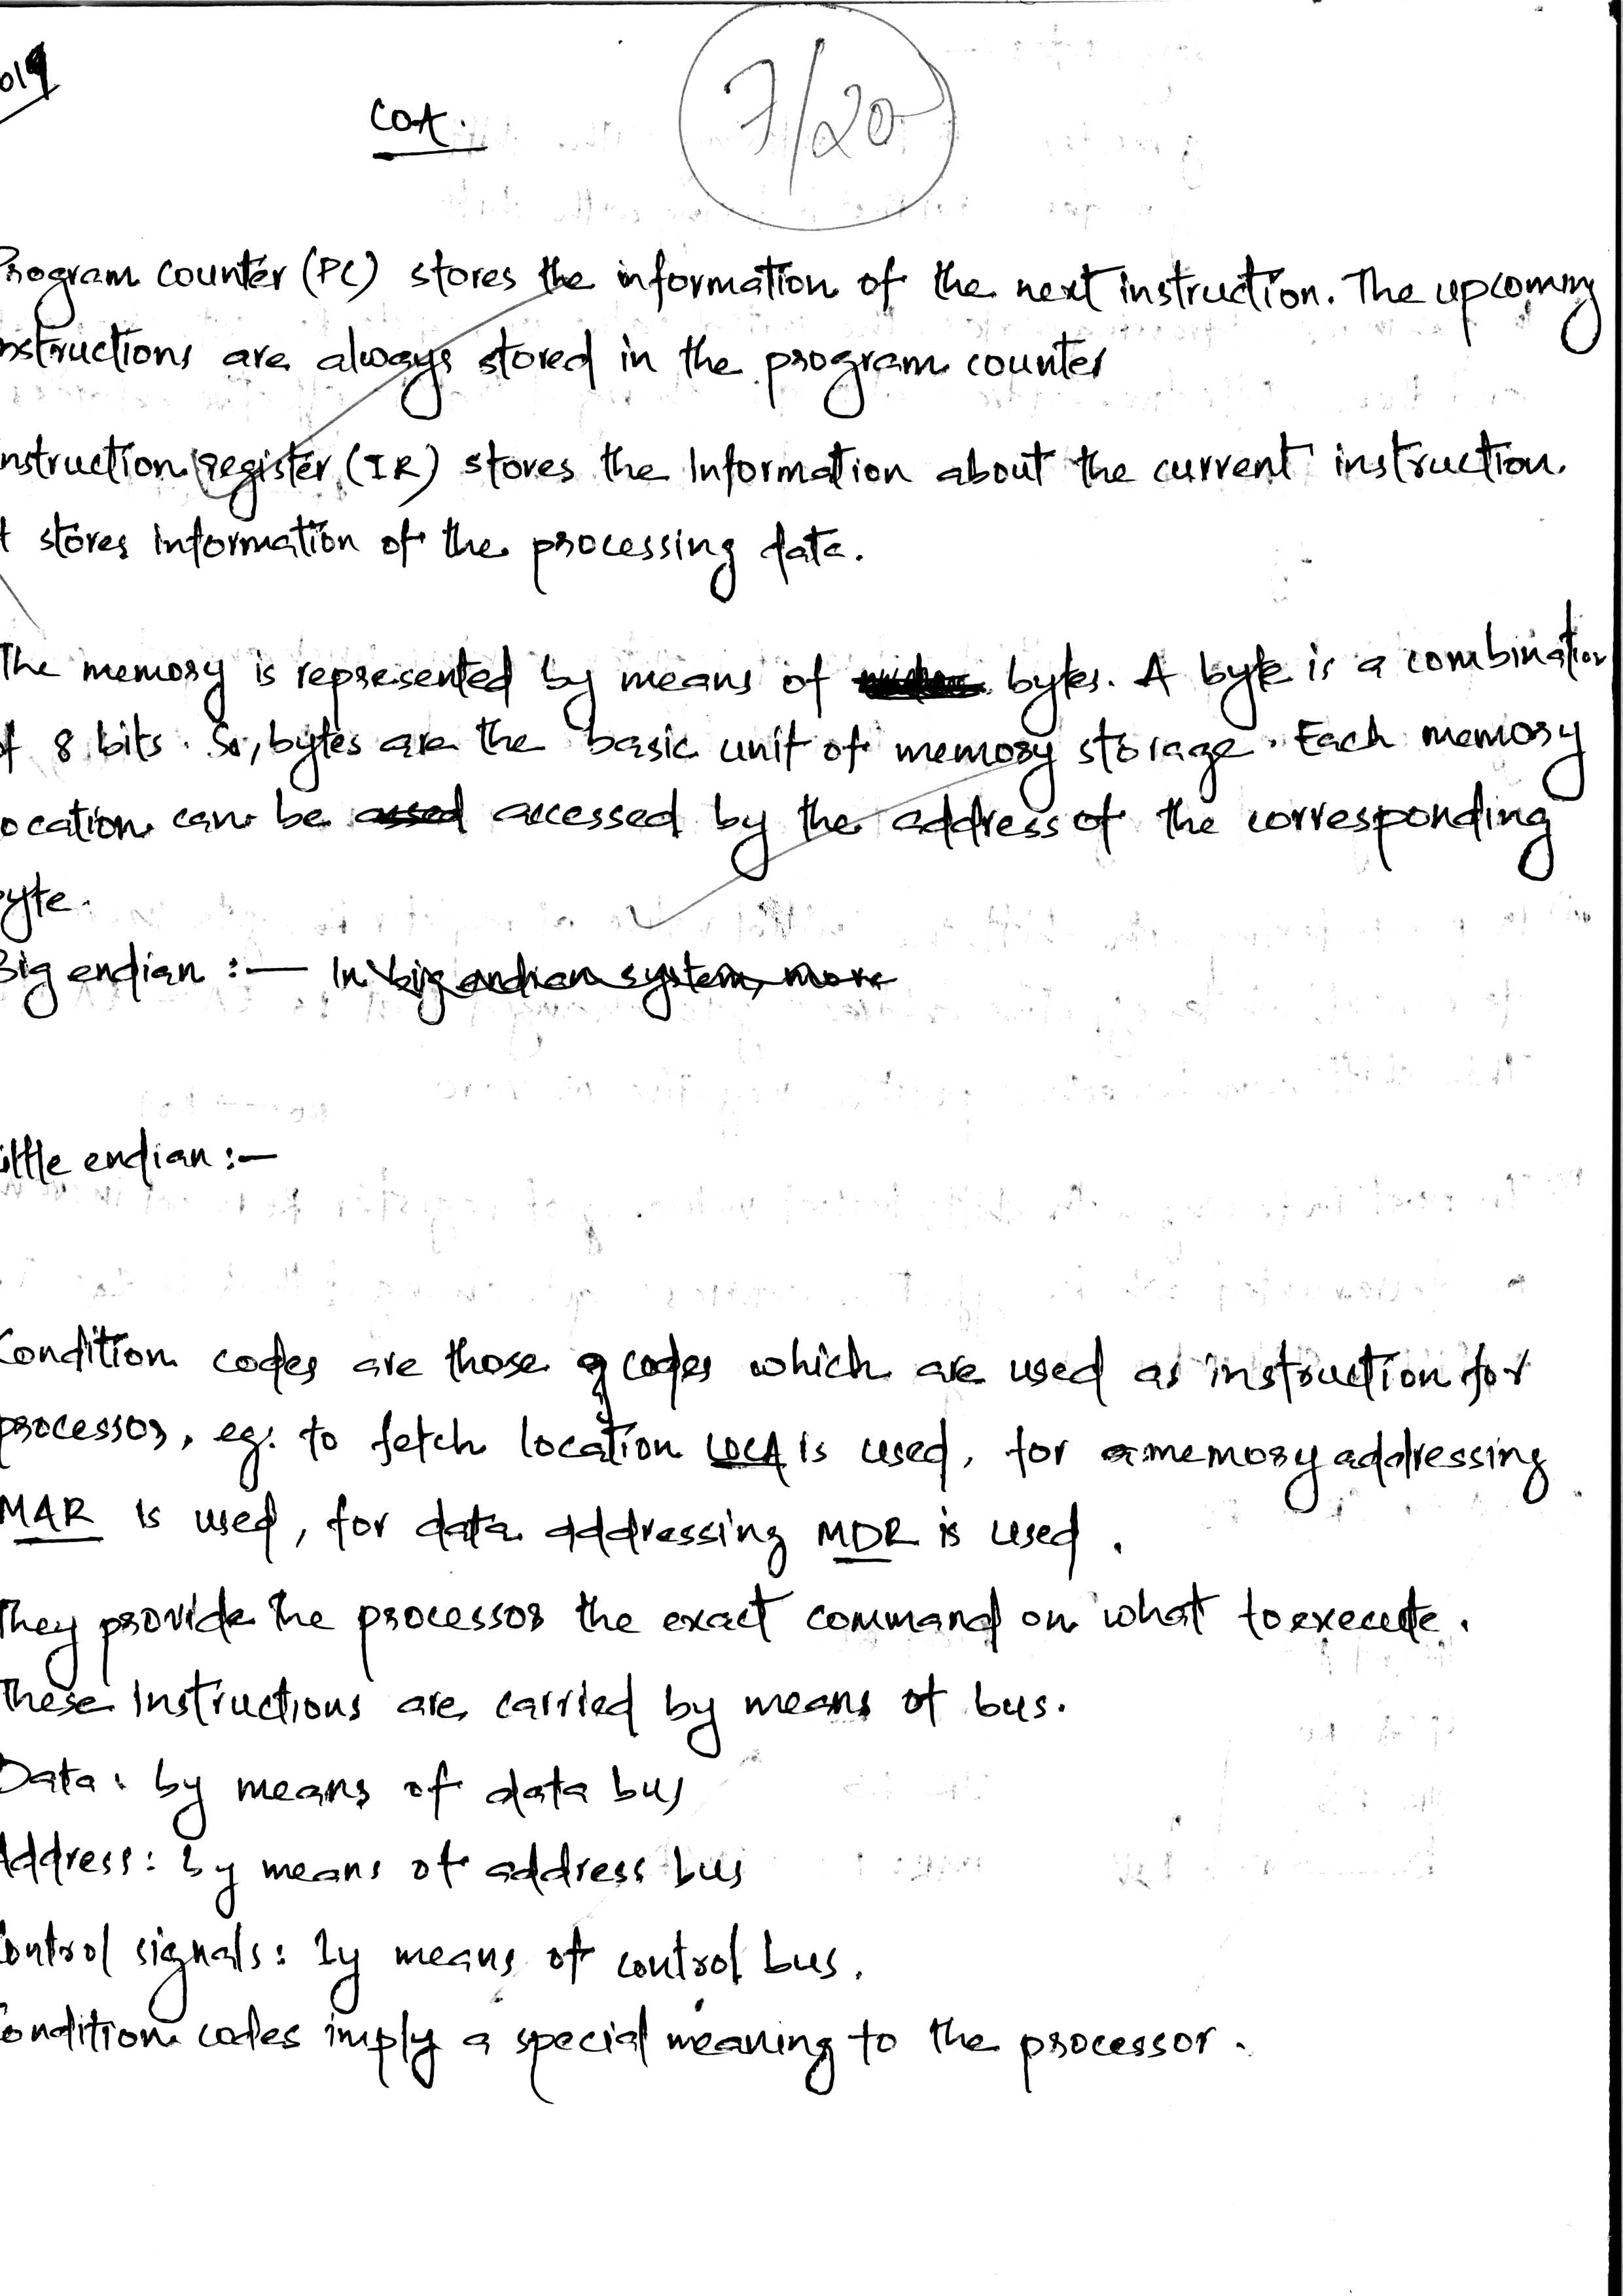 019
COA.
7/20
Program Counter (PC) stores the information of the next instruction. The upcoming
nstructions are always stored in the program counter
nstruction register (IR) stores the Information about the current instruction.
t stores information of the processing data.
The memory is represented by means of bytes. A byte is a combination
f 8 bits. So, bytes are the basic unit of memory storage. Each memory
ocation can be accessed by the address of the corresponding
yte.
Big endian :— In big endian system, more
ittle endian :—
Condition codes are those codes which are used as instruction for
processor, eg. to fetch location LOCA is used, for memory addressing
MAR is used, for data addressing MDR is used.
They provide the processor the exact command on what to execute.
These Instructions are carried by means of bus.
Data: by means of data bus
Address: by means of address bus
Control signals: by means of control bus.
ondition codes imply a special meaning to the processor.